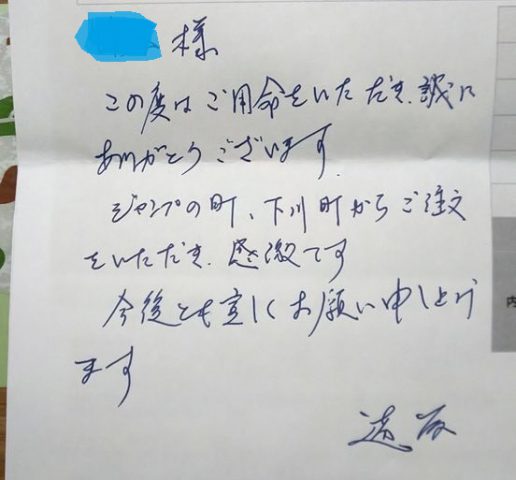 様
この度はご用命をいただき、誠に
ありがとうございます。
ジャンプの町、下川町からご注文
をいただき、感激です
今後とも宜しくお願い申し上げ
ます
内